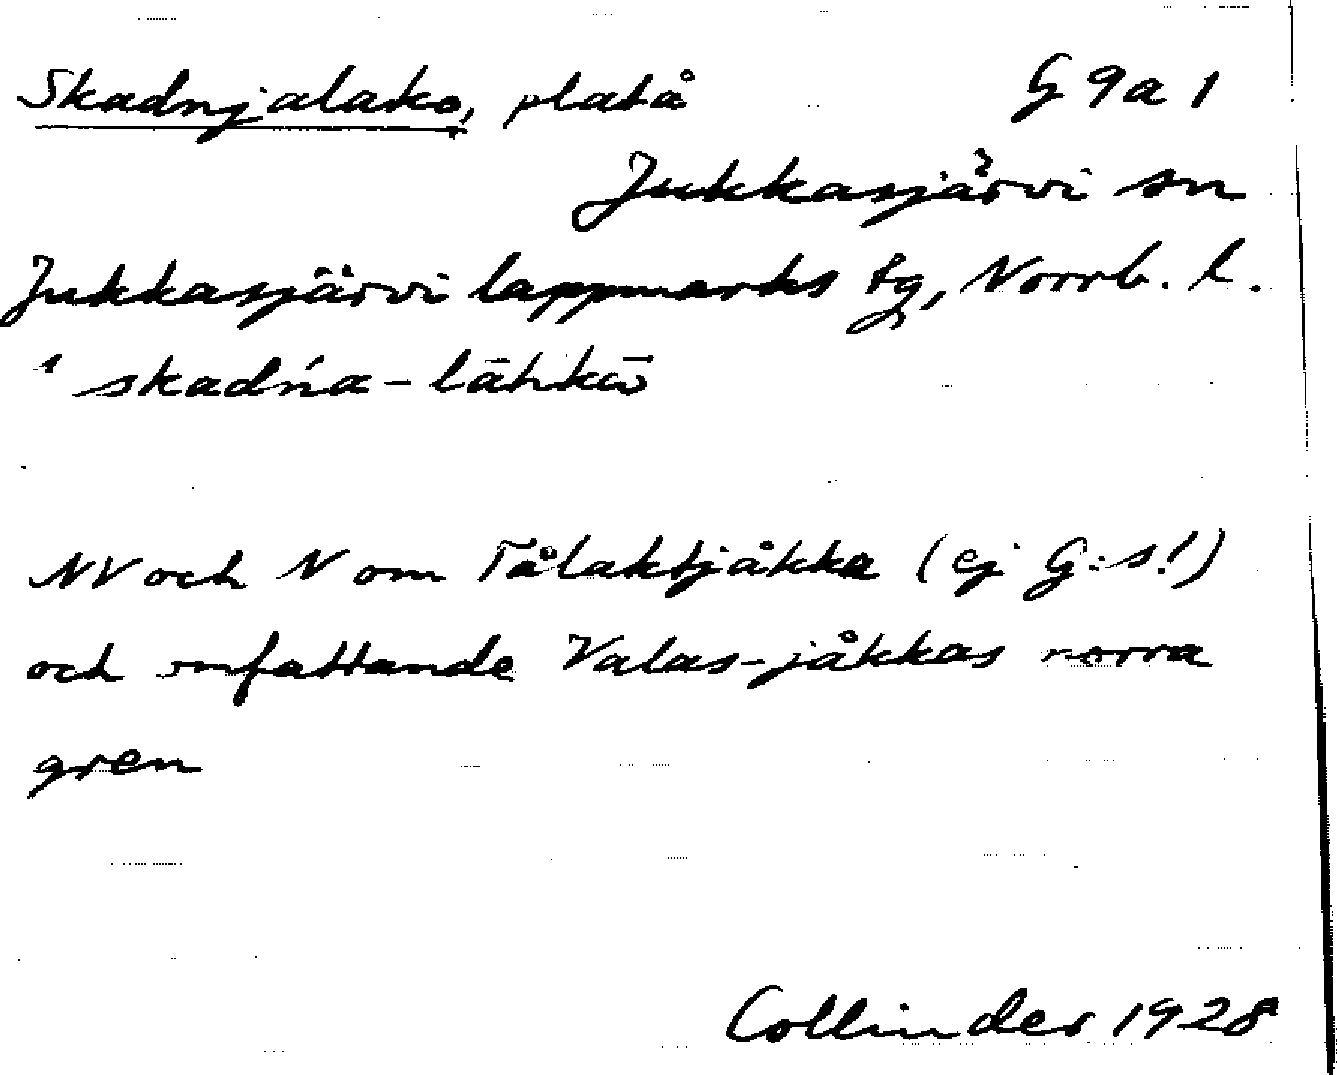 Skadnjalako, platå G 9 a 1
Jukkasjärvi sn
Jukkasjärvi lappmarks tg, Norrb. l.
skadńa-lāhkō
NV och N om Tålaktjåkka (ej G:s!)
och omfattande Valas-jåkkas norra
gren
Collinder 1928